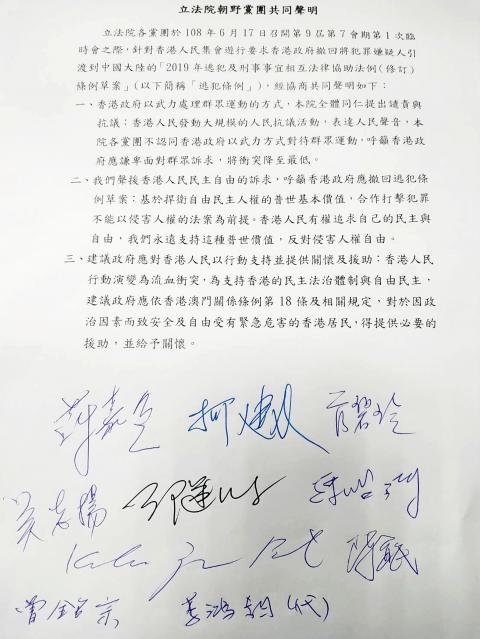 立法院朝野黨團共同聲明
立法院各黨團於 108 年 6 月 17 日召開第 9 屆第 7 會期第 1 次臨
時會之際，針對香港人民集會遊行要求香港政府撤回將犯罪嫌疑人引
渡到中國大陸的「2019 年逃犯及刑事事宜相互法律協助法例(修訂)
條例草案」(以下簡稱「逃犯條例」)，經協商共同聲明如下：
一、香港政府以武力處理群眾運動的方式，本院全體同仁提出譴責與
抗議；香港人民發動大規模的人民抗議活動，表達人民聲音，本
院各黨團不認同香港政府以武力方式對待群眾運動，呼籲香港政
府應謙卑面對群眾訴求，將衝突降至最低。
二、我們聲援香港人民民主自由的訴求，呼籲香港政府應撤回逃犯條
例草案；基於捍衛自由民主人權的普世基本價值，合作打擊犯罪
不能以侵害人權的法案為前提。香港人民有權追求自己的民主與
自由，我們永遠支持這種普世價值，反對侵害人權自由。
三、建議政府應對香港人民以行動支持並提供關懷及援助；香港人民
行動演變為流血衝突，為支持香港的民主法治體制與自由民主，
建議政府應依香港澳門關係條例第 18 條及相關規定，對於因政
治因素而致安全及自由受有緊急危害的香港居民，得提供必要的
援助，並給予關懷。
吳志揚
曾銘宗 李鴻鈞(代)